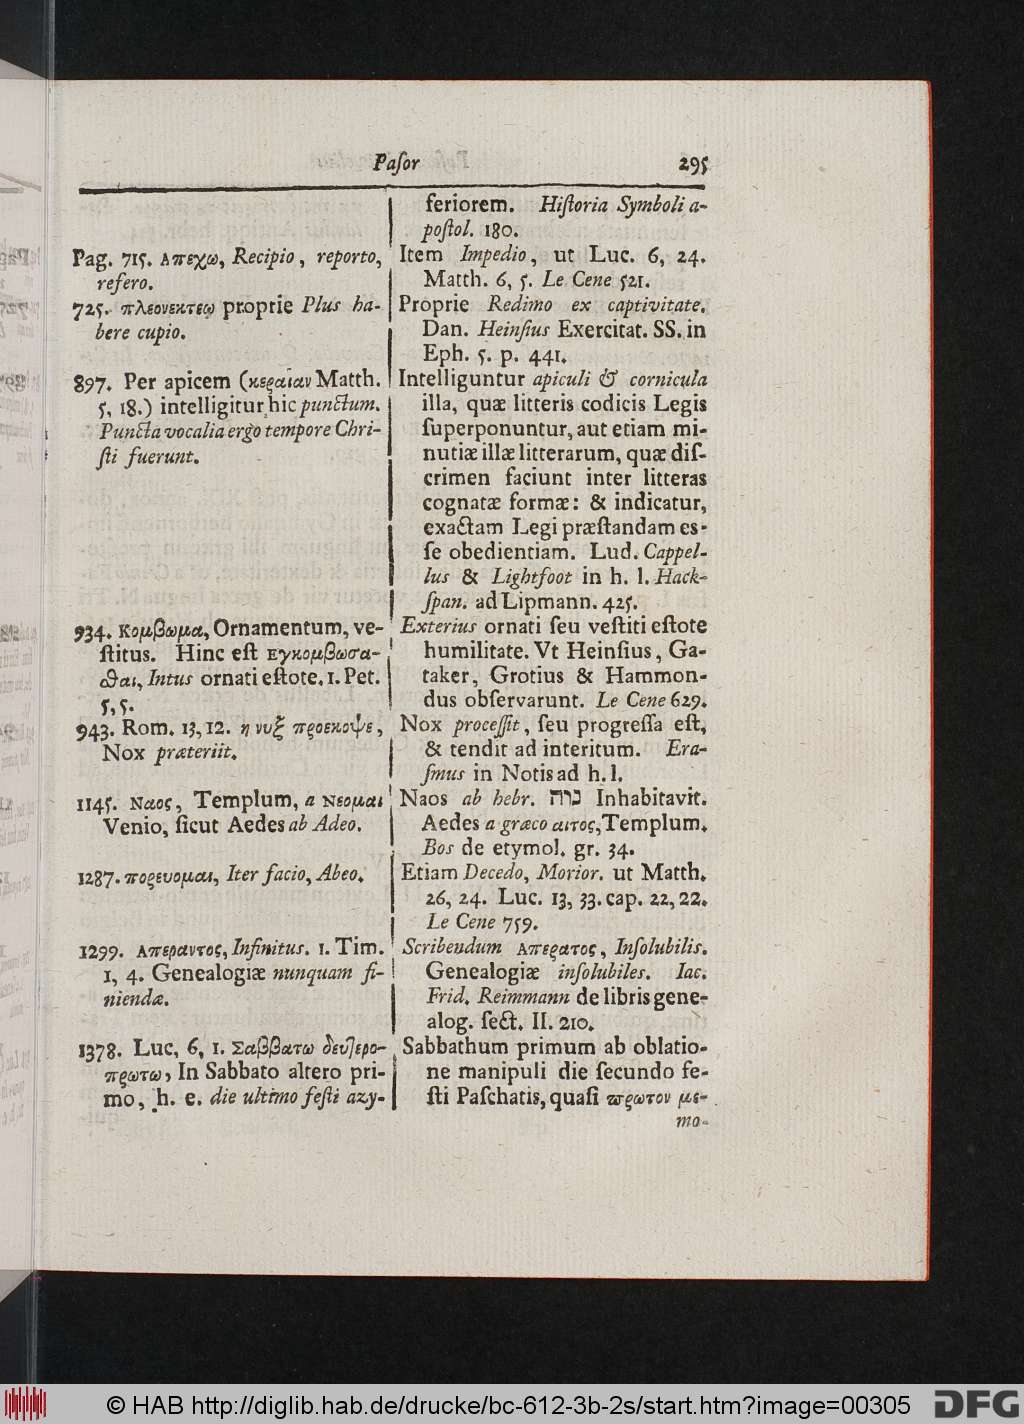 Paſor 295
feriorem. Hiſtoria Symboli a-
poſtol. 180.
Pag. 715. Απεχω, Recipio, reporto,
refero.
Item Impedio, ut Luc. 6, 24.
Matth. 6, 5. Le Cene 521.
725. πλεονεκτεω proprie Plus ha-
bere cupio.
Proprie Redimo ex captivitate.
Dan. Heinſius Exercitat. SS. in
Eph. 5. p. 441.
897. Per apicem (κεραίαν Matth.
5, 18.) intelligitur hic punctum.
Puncta vocalia ergo tempore Chri-
ſti fuerunt.
Intelliguntur apiculi & cornicula
illa, quæ litteris codicis Legis
ſuperponuntur, aut etiam mi-
nutiæ illæ litterarum, quæ diſ-
crimen faciunt inter litteras
cognatæ formæ: & indicatur,
exactam Legi præſtandam eſ-
ſe obedientiam. Lud. Cappel-
lus & Lightfoot in h. l. Hack-
ſpan. ad Lipmann. 425.
934. Κομβωμα, Ornamentum, ve-
ſtitus. Hinc eſt εγκομβωσα-
σθαι, Intus ornati eſtote. 1. Pet.
5, 5.
Exterius ornati ſeu veſtiti eſtote
humilitate. Vt Heinſius, Ga-
taker, Grotius & Hammon-
dus obſervarunt. Le Cene 629.
943. Rom. 13, 12. η νυξ προεκοψε,
Nox præteriit.
Nox proceſſit, ſeu progreſſa eſt,
& tendit ad interitum. Era-
ſmus in Notis ad h. l.
1145. Ναος, Templum, a Νεομαι
Venio, ſicut Aedes ab Adeo.
Naos ab hebr. נוה Inhabitavit.
Aedes a græco αιτος, Templum.
Bos de etymol. gr. 34.
1287. πορευομαι, Iter facio, Abeo.
Etiam Decedo, Morior. ut Matth.
26, 24. Luc. 13, 33. cap. 22, 22.
Le Cene 759.
1299. Απεραντος, Infinitus. 1. Tim.
1, 4. Genealogiæ nunquam fi-
niendæ.
Scribendum Απερατος, Inſolubilis.
Genealogiæ inſolubiles. Iac.
Frid. Reimmann de libris gene-
alog. ſect. II. 210.
1378. Luc, 6, 1. Σαββατω δευτερο-
πρωτω, In Sabbato altero pri-
mo, h. e. die ultimo feſti azy-
Sabbathum primum ab oblatio-
ne manipuli die ſecundo fe-
ſti Paſchatis, quaſi πρωτον με-
mo-
© HAB http://diglib.hab.de/drucke/bc-612-3b-2s/start.htm?image=00305 DFG